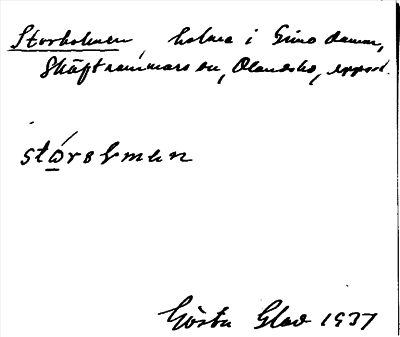 Storholmen, holme i Gimo damm,
Skäfthammars sn, Olandshd, Uppsal.
stórəlmən
Gösta Glad 1937